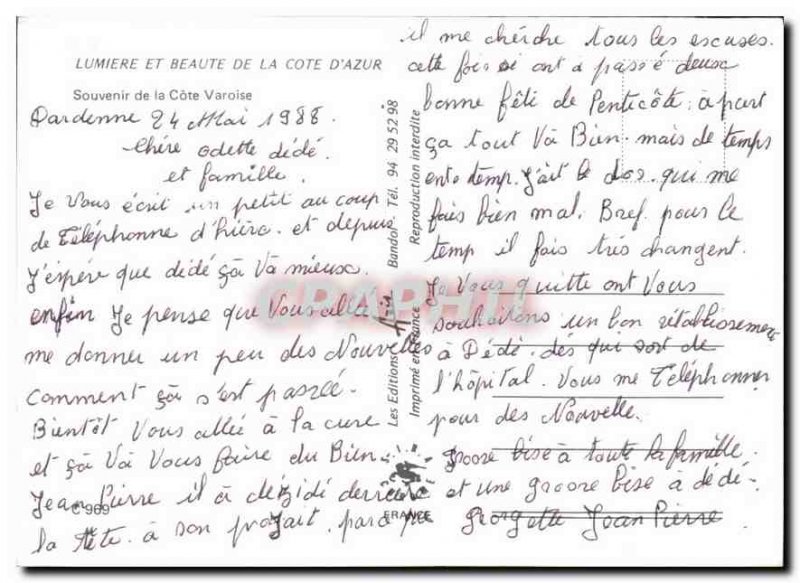 LUMIERE ET BEAUTE DE LA COTE D'AZUR
Souvenir de la Côte Varoise
Dardenne 24 Mai 1988.
Chére odette dédé.
et famille.
Je Vous écrit un petit au coup
de Téléphonne d'hiérc. et depuis
J'éspére que dédé çà Và mieux.
enfin Je pense que Vous allé
me donner un peu des Nouvelles
Comment çà s'est passée.
Bientôt Vous allée à la cure
et çà Và Vous faire du Bien.
Jean Pierre il à dézidé derrière
la tête. à son projait. parce que
il me chérche tous les escuses.
cette fois si ont a passé deux
bonne fêti de Penticôte. à part
ça tout Và Bien. mais de temps
ento temp. J'ait le dos. qui me
fais bien mal. Bref. pour le
temp il fais trés changent.
Je Vous quitte ont Vous
souhaitons un bon rétablissement
à Dédé. dés qui sort de
l'hôpital. Vous me Téléphonner
pour des Nouvelle.
Groose bise à toute la famille.
et une groose bise à dédé.
Georgette Jean Pierre.
Les Editions Aris Bandol - Tél. 94 29 52 98
Imprimé en France Reproduction interdite
C 969
FRANCE
CPAPHIL